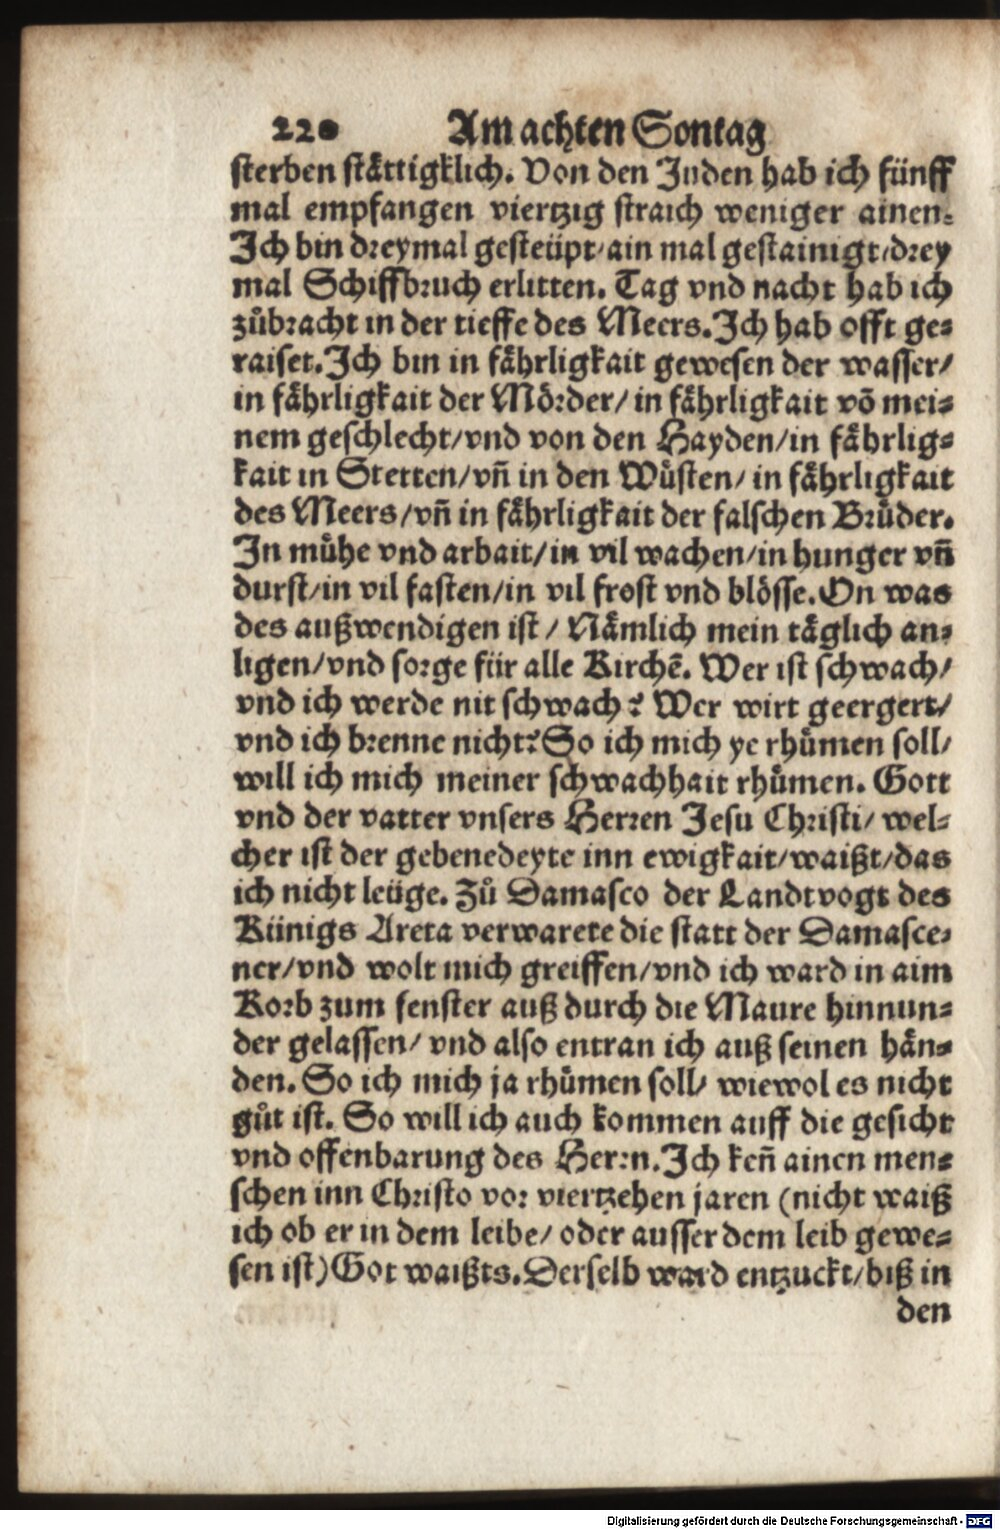 220 Am achten Sontag
sterben stättigklich. Von den Juden hab ich fünff
mal empfangen viertzig straich weniger ainen.
Ich bin dreymal gesteüpt/ain mal gestainigt/drey
mal Schiffbruch erlitten. Tag vnd nacht hab ich
zůbracht in der tieffe des Meers. Ich hab offt ge-
raiset. Ich bin in fährligkait gewesen der wasser/
in fährligkait der Mörder/in fährligkait võ mei-
nem geschlecht/vnd von den Hayden/in fährlig-
kait in Stetten/vñ in den Wüsten/in fährligkait
des Meers/vñ in fährligkait der falschen Brüder.
In mühe vnd arbait/in vil wachen/in hunger vñ
durst/in vil fasten/in vil frost vnd blösse. On was
des außwendigen ist/ Nämlich mein täglich an-
ligen/vnd sorge für alle Kirchẽ. Wer ist schwach/
vnd ich werde nit schwach? Wer wirt geergert/
vnd ich brenne nicht? So ich mich ye rhümen soll/
will ich mich meiner schwachhait rhümen. Gott
vnd der vatter vnsers Herren Jesu Christi/ wel-
cher ist der gebenedeyte inn ewigkait/waißt/das
ich nicht leüge. Zů Damasco der Landtvogt des
Künigs Areta verwarete die statt der Damasce-
ner/vnd wolt mich greiffen/vnd ich ward in aim
Korb zum fenster auß durch die Maure hinnun-
der gelassen/ vnd also entran ich auß seinen hän-
den. So ich mich ja rhümen soll/ wiewol es nicht
gůt ist. So will ich auch kommen auff die gesicht
vnd offenbarung des Herrn. Ich keñ ainen men-
schen inn Christo vor viertzehen jaren (nicht waiß
ich ob er in dem leibe/ oder ausser dem leib gewe-
sen ist) Got waißts. Derselb ward entzuckt/biß in
den
Digitalisierung gefördert durch die Deutsche Forschungsgemeinschaft - DFG